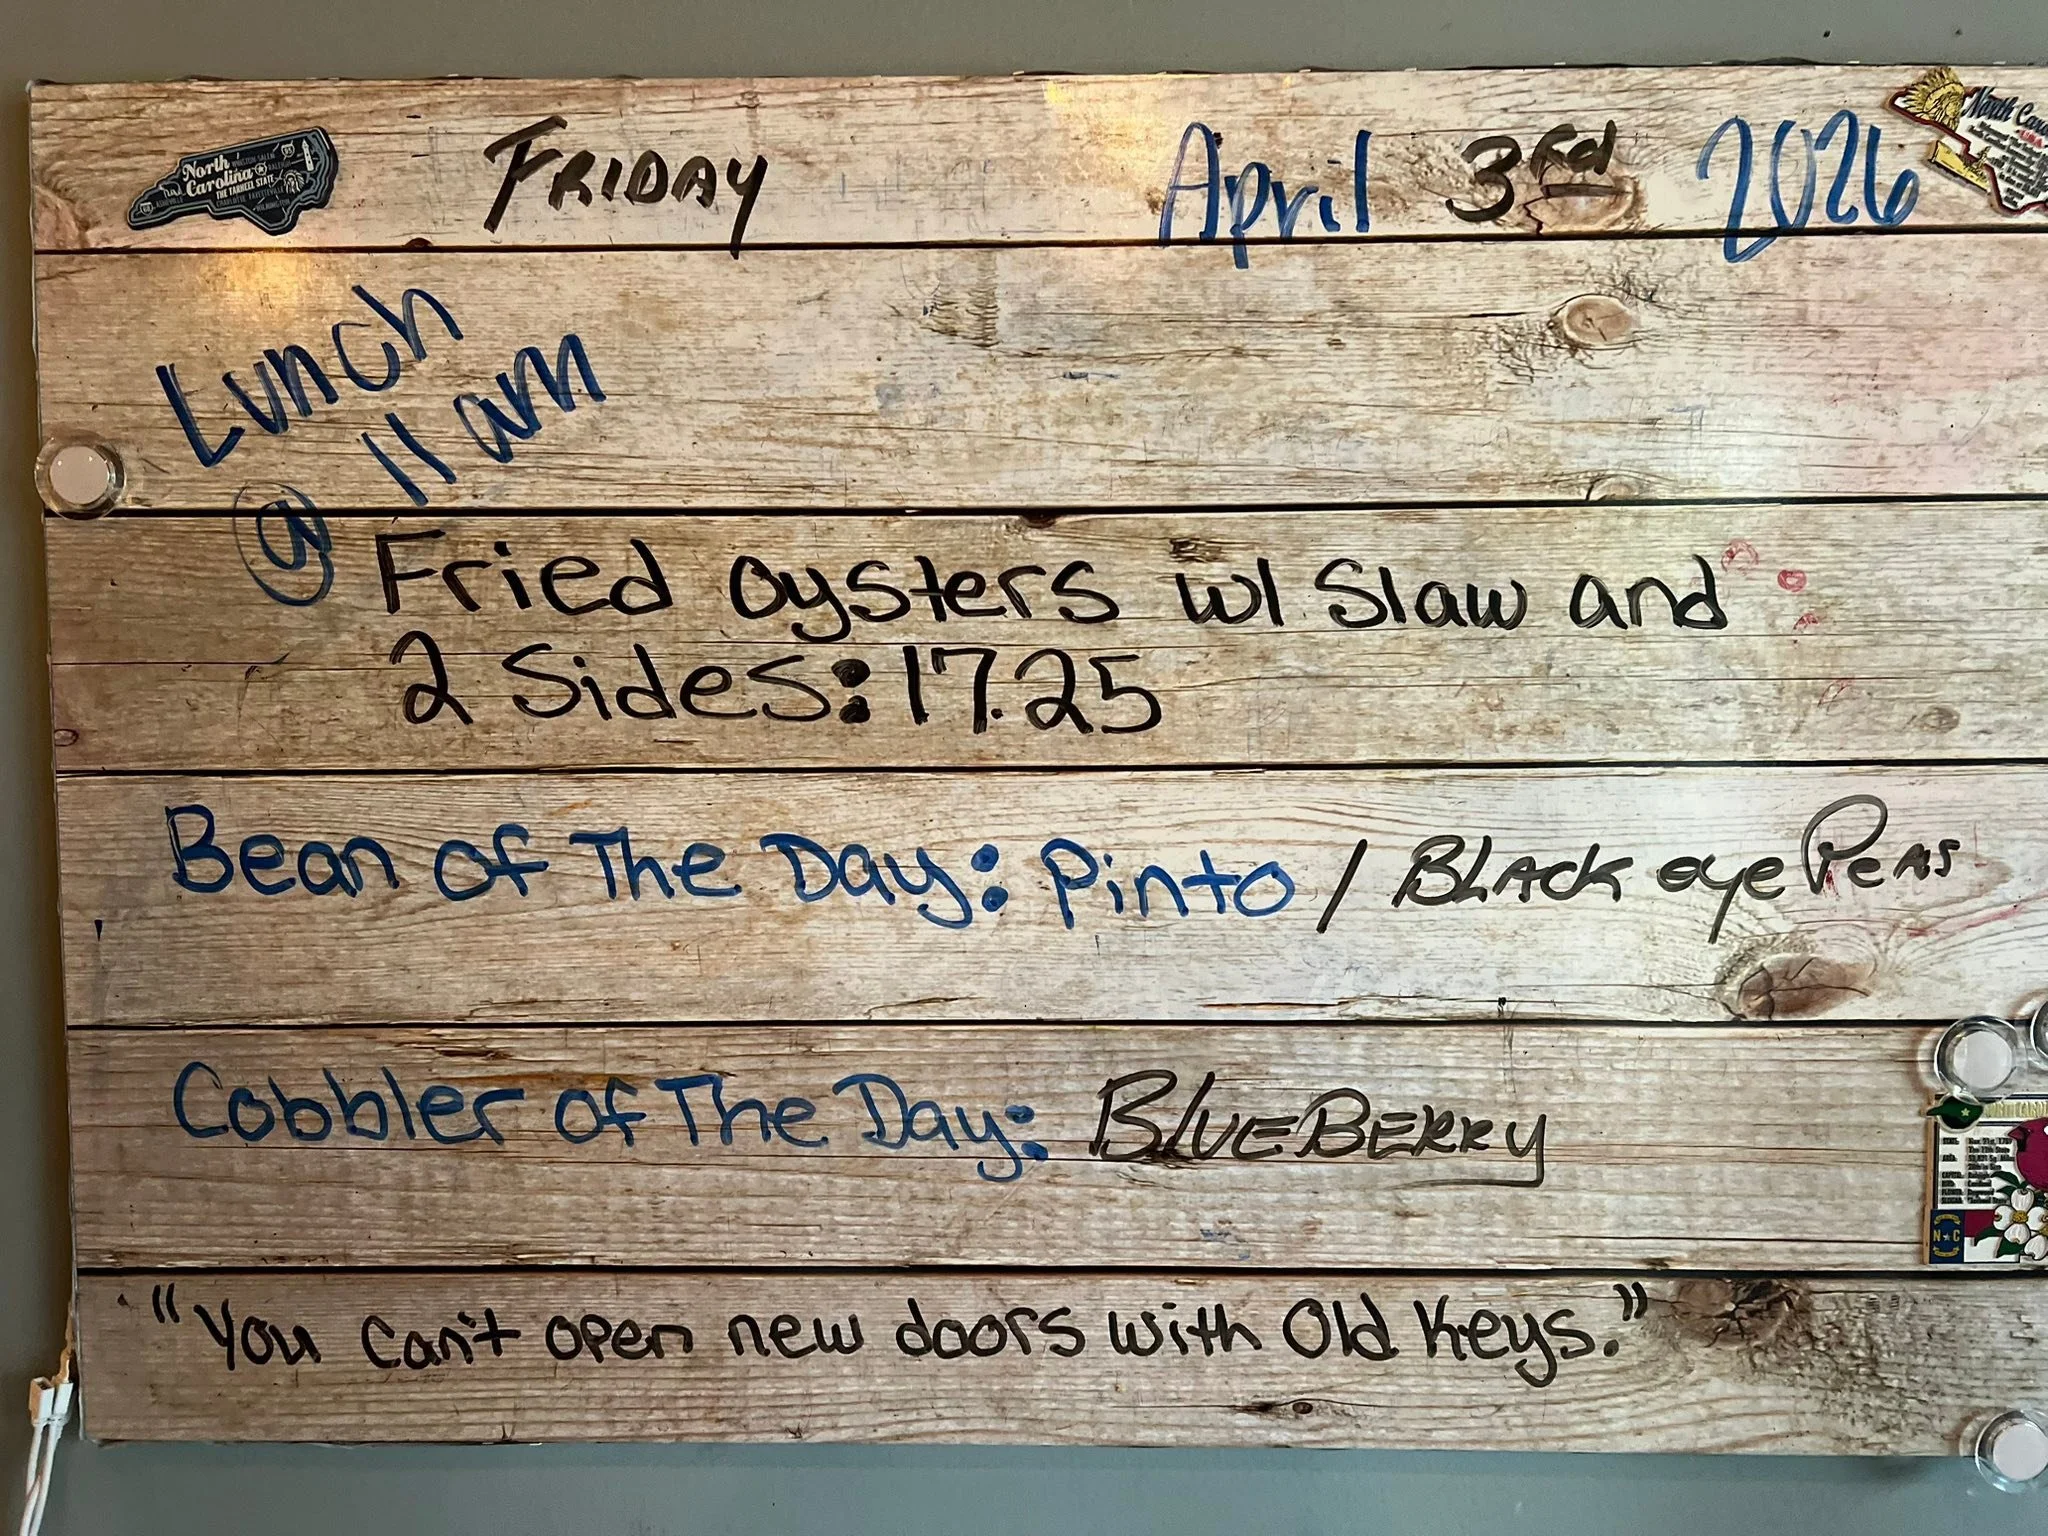 FRIDAY April 3rd 2026
North Carolina
THE TARHEEL STATE
Lunch
@ 11am
Fried oysters w/ Slaw and
2 Sides: 17.25
Bean of The Day: Pinto / BLACK eye PEAS
Cobbler of The Day: BLUEBERRY
"You can't open new doors with Old Keys."
N C